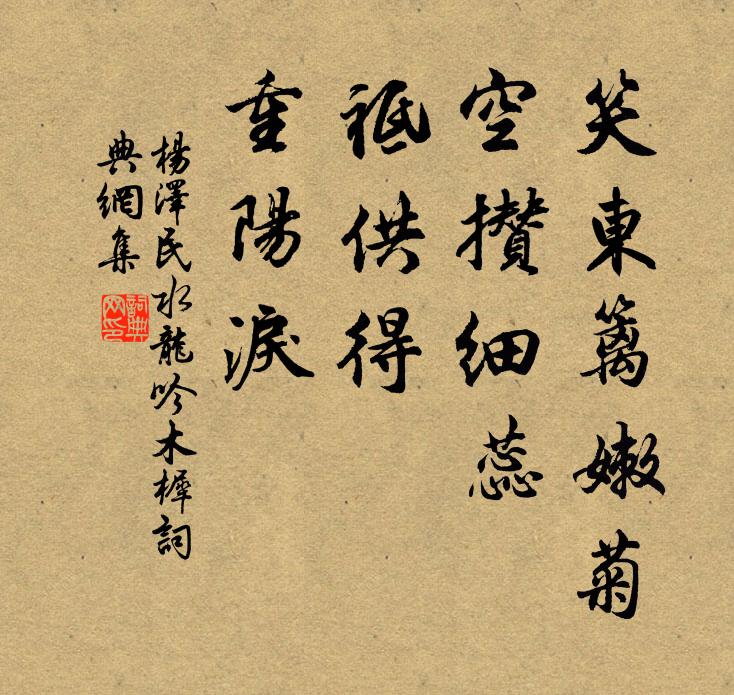 笑東籬嫩菊
空攢細蕊
祗供得
重陽淚
楊澤民水龍吟木樨詞
典網集
詞典
网印